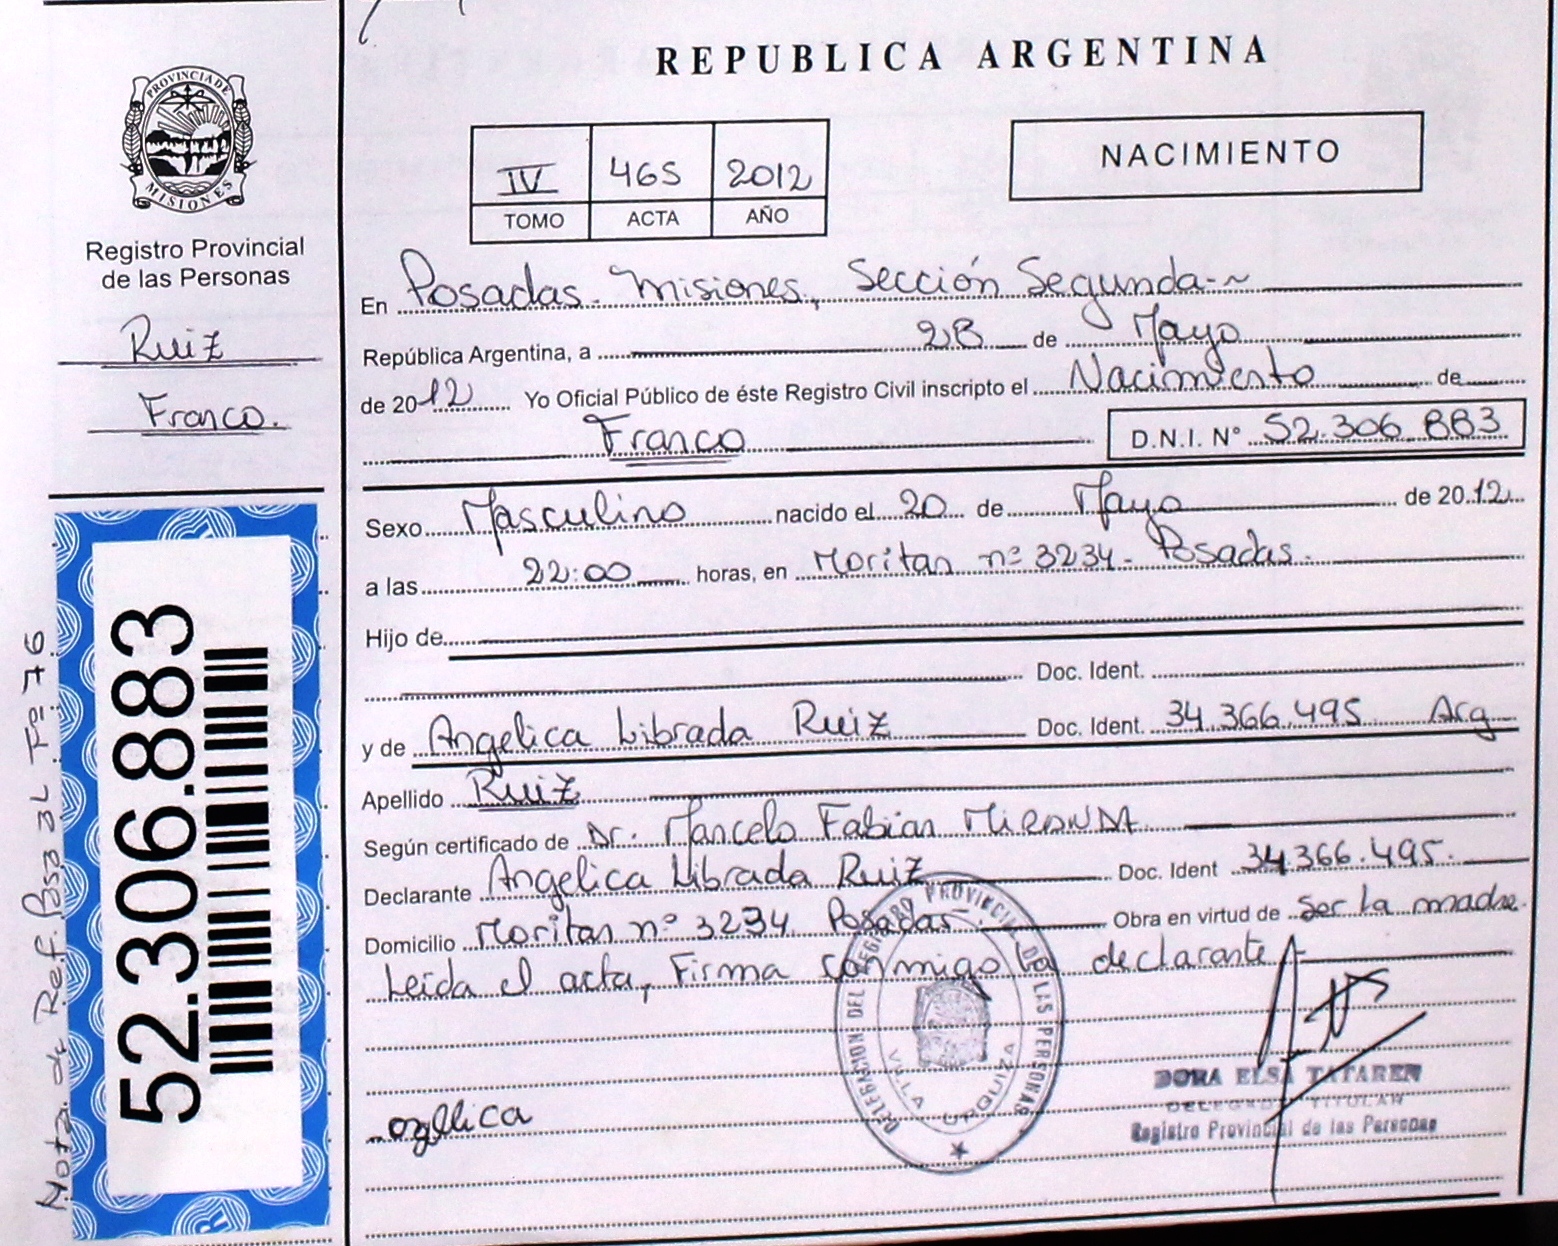 PROVINCIA DE
MISIONES
Registro Provincial
de las Personas
Ruiz
Franco.
52.306.883
Nota de Ref. Posa 3L Fº 76
REPUBLICA ARGENTINA
IV 465 2012
TOMO ACTA AÑO
NACIMIENTO
En Posadas. Misiones, Sección Segunda
República Argentina, a 28 de Mayo
de 2012 Yo Oficial Público de éste Registro Civil inscripto el Nacimiento de
Franco D.N.I. N° 52.306.883
Sexo Masculino nacido el 20 de Mayo de 2012
a las 22:00 horas, en Moritan nº 3234 - Posadas.
Hijo de
Doc. Ident.
y de Angelica Librada Ruiz Doc. Ident. 34.366.495 Arg
Apellido Ruiz
Según certificado de Dr. Marcelo Fabian MIRANDA
Declarante Angelica Librada Ruiz Doc. Ident 34.366.495.
Domicilio Moritan nº 3234 Posadas Obra en virtud de ser la madre.
Leída el acta, Firma conmigo la declarante
DELEGACION DEL REGISTRO PROVINCIAL DE LAS PERSONAS
VILLA URQUIZA
DORA ELSA TATAREN
DELEGADA TITULAR
Registro Provincial de las Personas